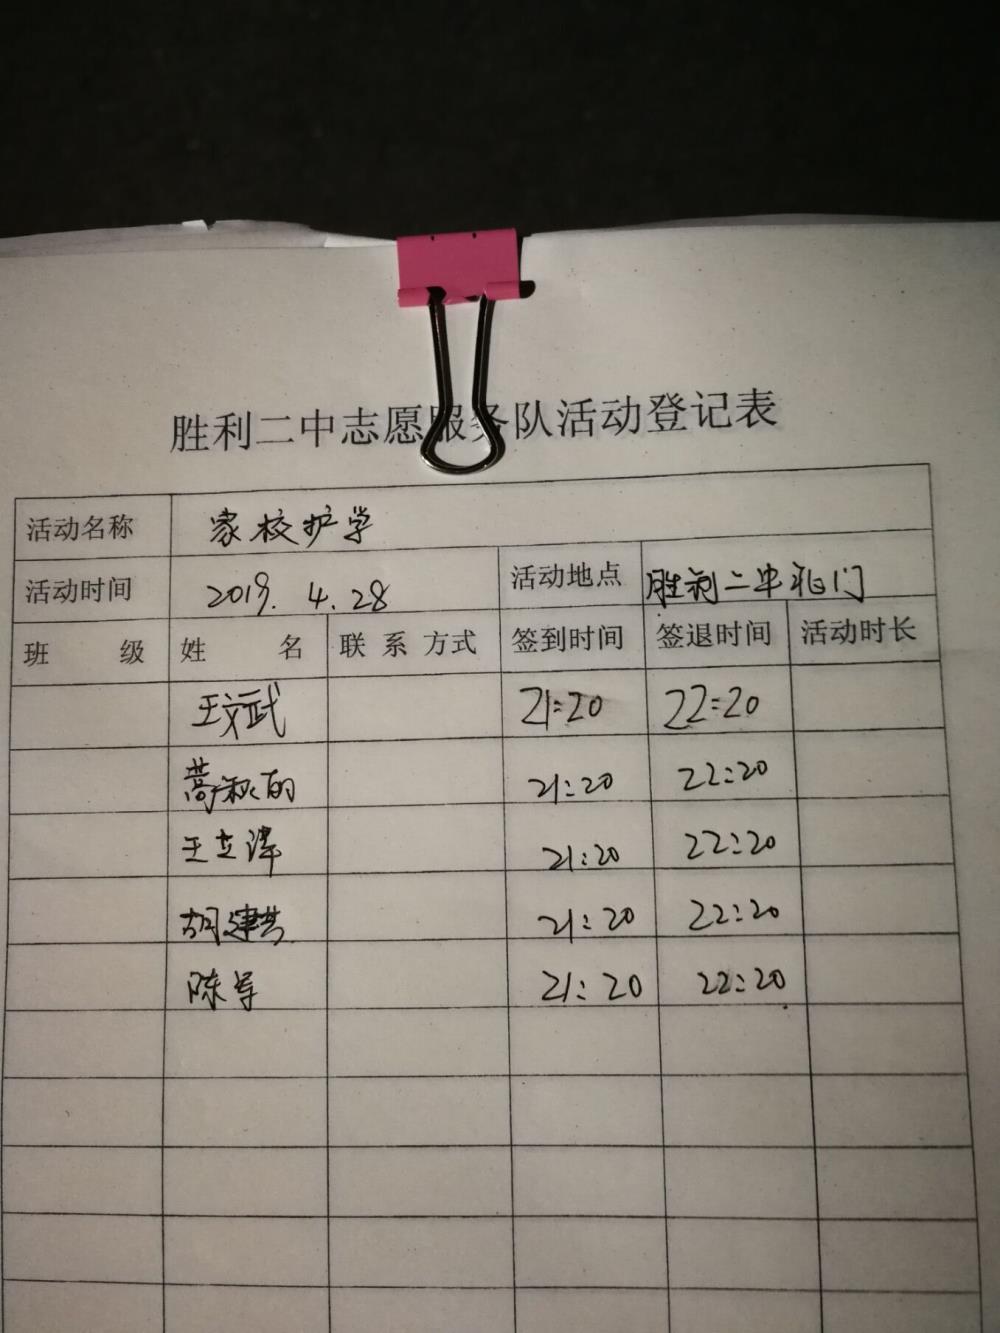 胜利二中志愿服务队活动登记表
活动名称 家校护学
活动时间 2019.4.28 活动地点 胜利二中北门
班 级 姓 名 联 系 方式 签到时间 签退时间 活动时长
王文武 21:20 22:20
21:20 22:20
王立泽 21:20 22:20
胡建 21:20 22:20
陈军 21:20 22:20